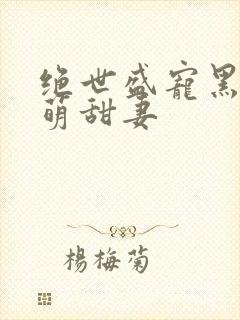 绝世盛宠黑
萌甜妻
楊梅菊